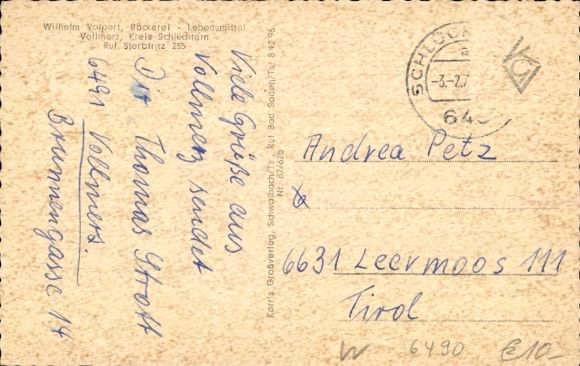 Wilhelm Volpert, Bäckerei - Lebensmittel
Vollmerz, Kreis Schlüchtern
Ruf Sterbfritz 255
Viele Grüße aus
Vollmerz sendet
Dir Thomas Strott
6491 Vollmerz.
Brunnengasse 14
Korr's Großverlag, Schwalbach/Ts., Ruf Bad Soden/Ts. 8 42 96
Nr. 87/626
SCHLÜCH
a
-3.-2.7
64
Andrea Petz
6631 Leermoos 111
Tirol
W 6490 €10-